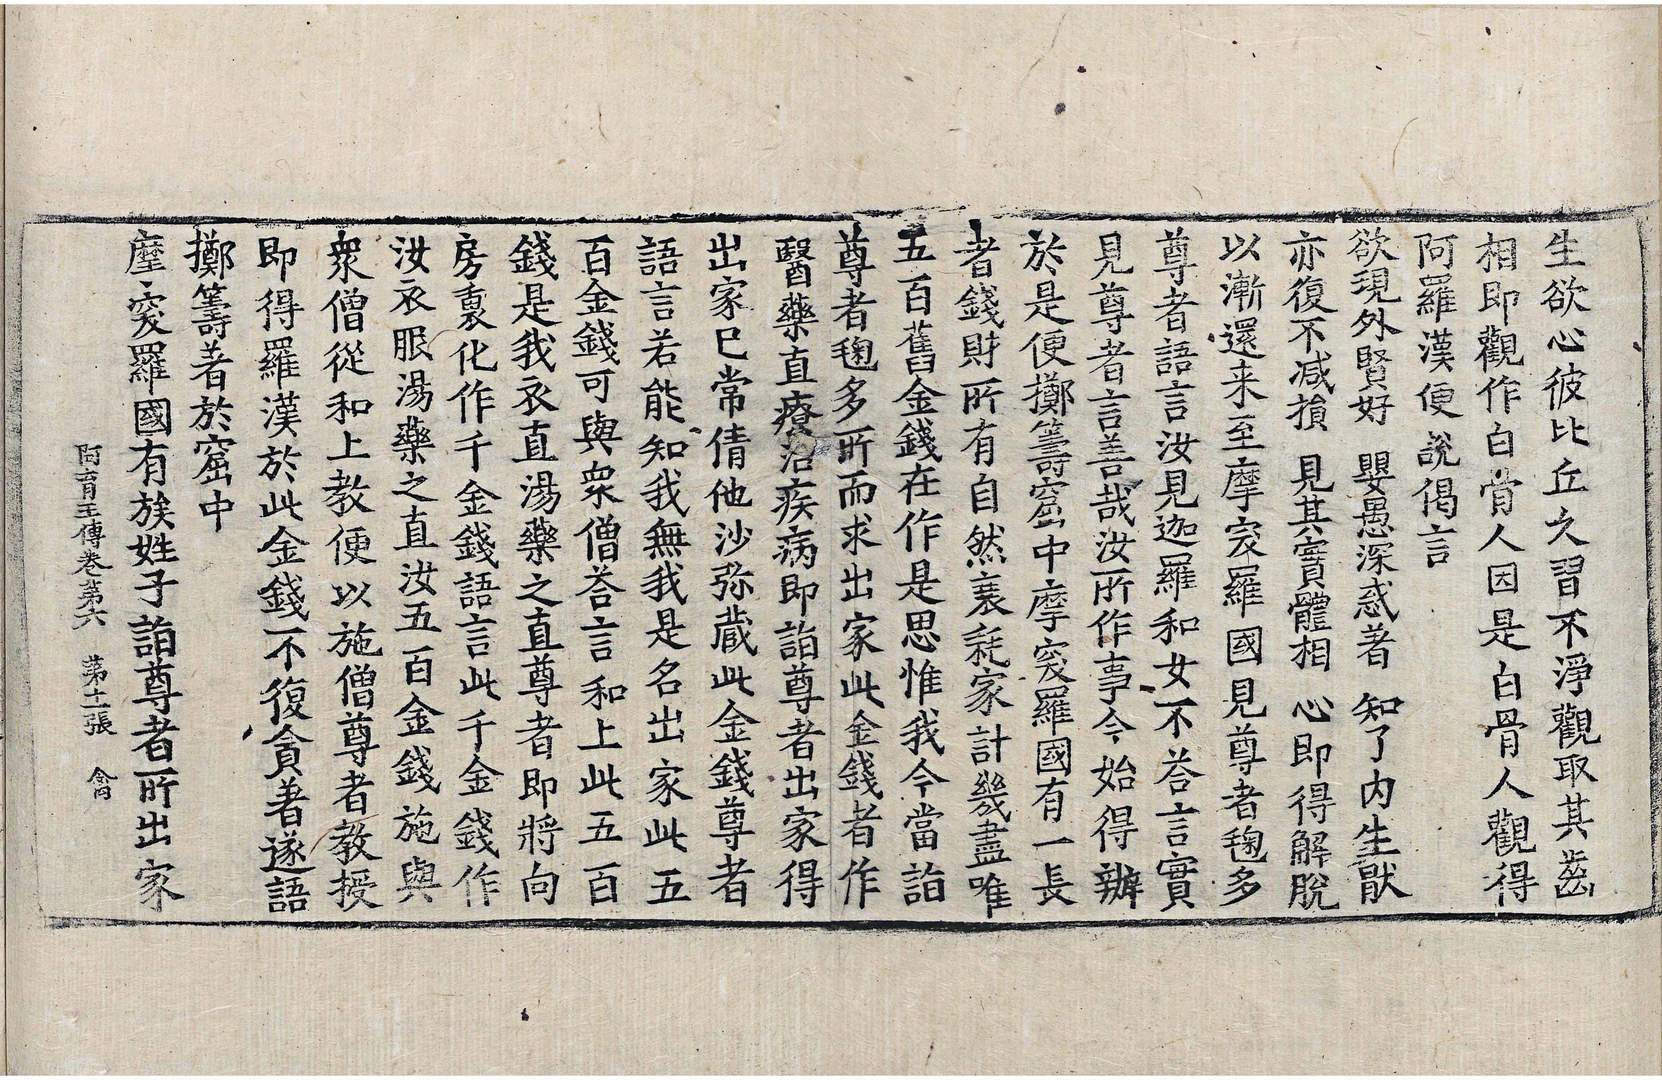 生欲心彼比丘之習不淨觀取其齒
相即觀作白骨人因是白骨人觀得
阿羅漢便說偈言
欲現外賢好　嬰愚深惑著　知了內生猒
亦復不減損　見其實體相　心即得解脫
以漸還来至摩突羅國見尊者毱多
尊者語言汝見迦羅和女不荅言實
見尊者言善哉汝所作事今始得辦
於是便擲籌窟中摩突羅國有一長
者錢財所有自然衰耗家計幾盡唯
五百舊金錢在作是思惟我今當詣
尊者毱多所而求出家此金錢者作
醫藥直療治疾病即詣尊者出家得
出家已常倩他沙弥藏此金錢尊者
語言若能知我無我是名出家此五
百金錢可與衆僧荅言和上此五百
錢是我衣直湯藥之直尊者即將向
房裏化作千金錢語言此千金錢作
汝衣服湯藥之直汝五百金錢施與
衆僧從和上教便以施僧尊者教授
即得羅漢於此金錢不復貪著遂語
擲籌著於窟中
摩突羅國有族姓子詣尊者所出家
阿育王傳卷第六　第十一張　禽